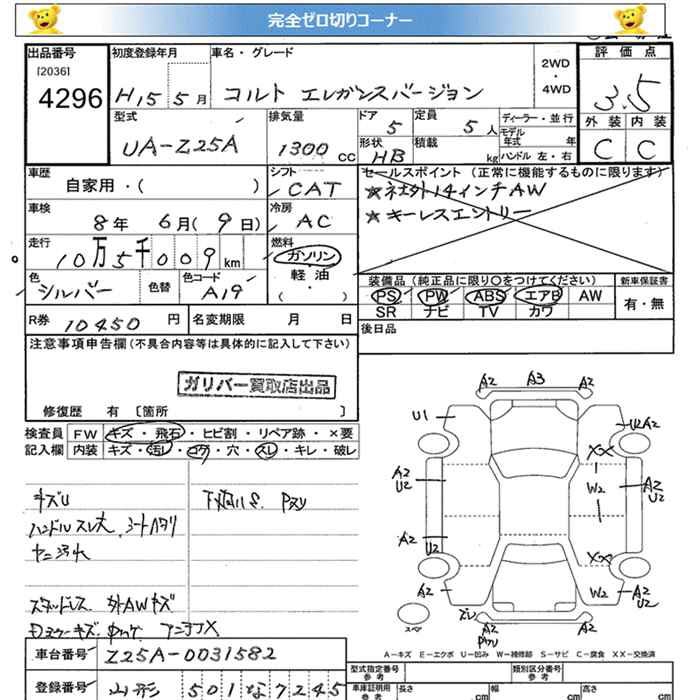 完全ゼロ切りコーナー
出品番号
[2036]
4296
初度登録年月
H15 5月
車名・グレード
コルト エレガンスバージョン
2WD
・
4WD
評価点
3.5
外装 内装
C C
型式
UA-Z25A
排気量
1300 CC
ドア 5
定員 5人
形状 HB
積載 kg
ディーラー・並行
モデル年式 年
ハンドル 左・右
車歴
自家用・( )
シフト
CAT
車検
8年 6月(9日)
冷房
AC
走行
10万5千009km
燃料
ガソリン
軽油
( )
色
シルバー
色替
色コード
A19
R券 10450円
名変期限 月 日
セールスポイント(正常に機能するものに限ります)
★社外14インチAW
★キーレスエントリー
装備品(純正品に限り〇をつけてください)
PS PW ABS エアB AW
SR ナビ TV カワ
新車保証書
有・無
後日品
注意事項申告欄(不具合内容等は具体的に記入して下さい)
ガリバー買取店出品
修復歴 有 [箇所 ]
検査員 FW キズ・飛石・ヒビ割・リペア跡・×要
記入欄 内装 キズ・汚レ・コゲ・穴・スレ・キレ・破レ
キズU
ハンドルスレ大、シートヘタリ
ヤニ汚れ
下廻りS
スタッドレス 外AWキズ
A2 A3 A2
U1
A2
U2
XX
W2
A2
U2
A2
U2
XX
W2
A2
A2
U2
A2
スペア
A2
A2
A-キズ E-エクボ U-凹み W-補修跡 S-サビ C-腐食 XX-交換済
車台番号 Z25A-0031582
登録番号 山形 501な7245
型式指定番号
参考
類別区分番号
参考
車庫証明用
参考
長さ cm
幅 cm
高さ cm